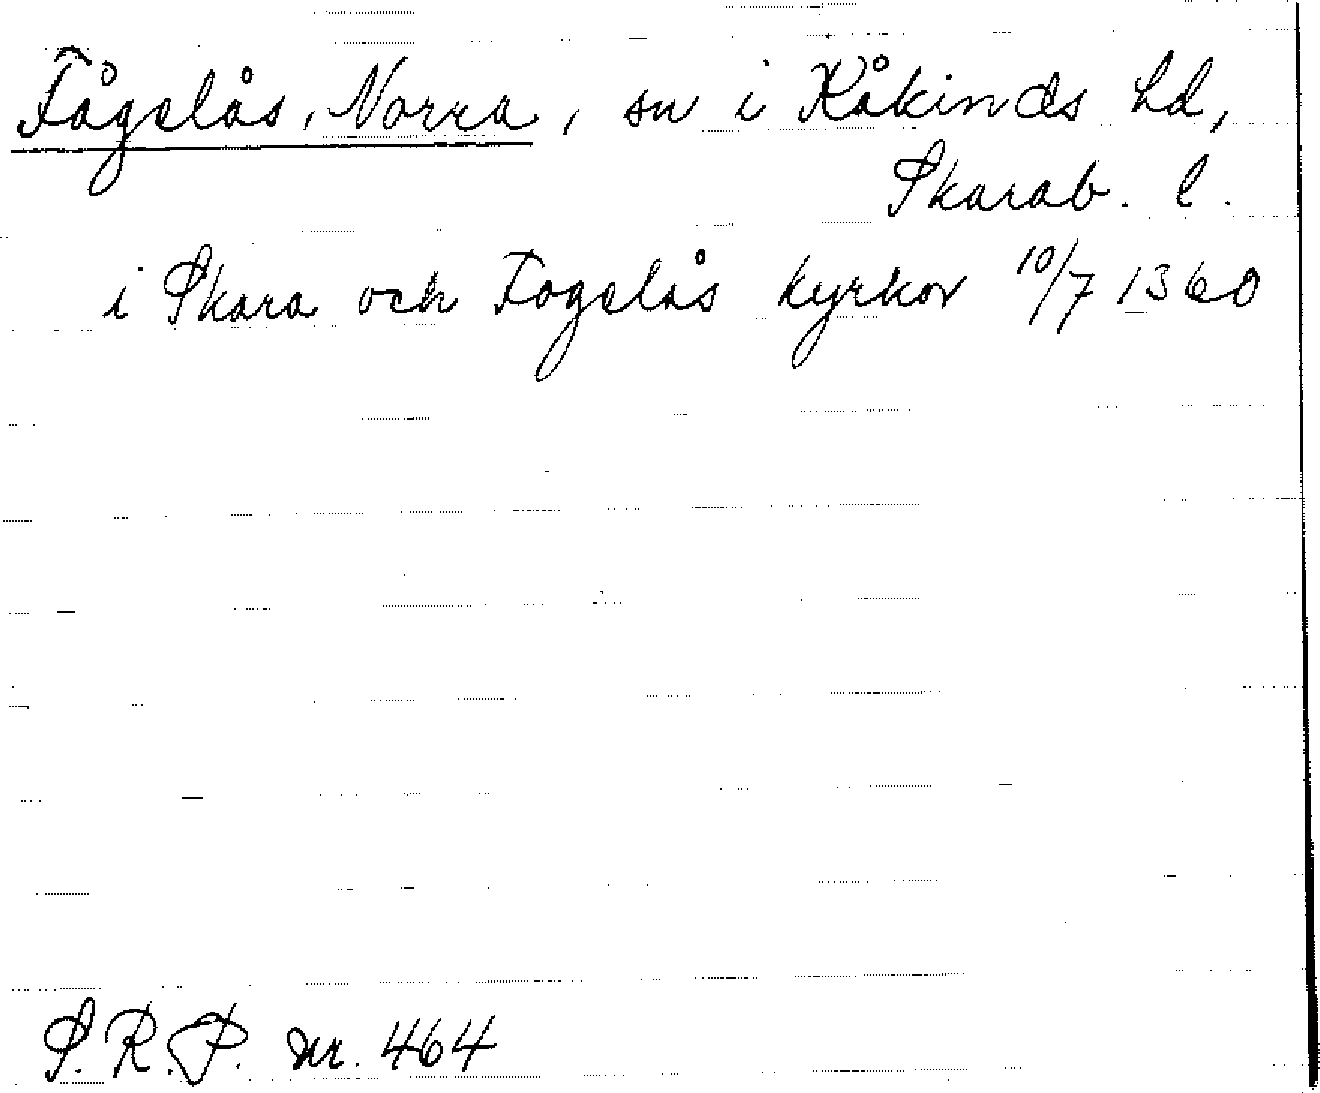 Fågelås, Norra, sn i Kåkinds hd,
Skarab. l.
i Skara och Fogelås kyrkor 10/7 1360
S.R.P. nr. 464